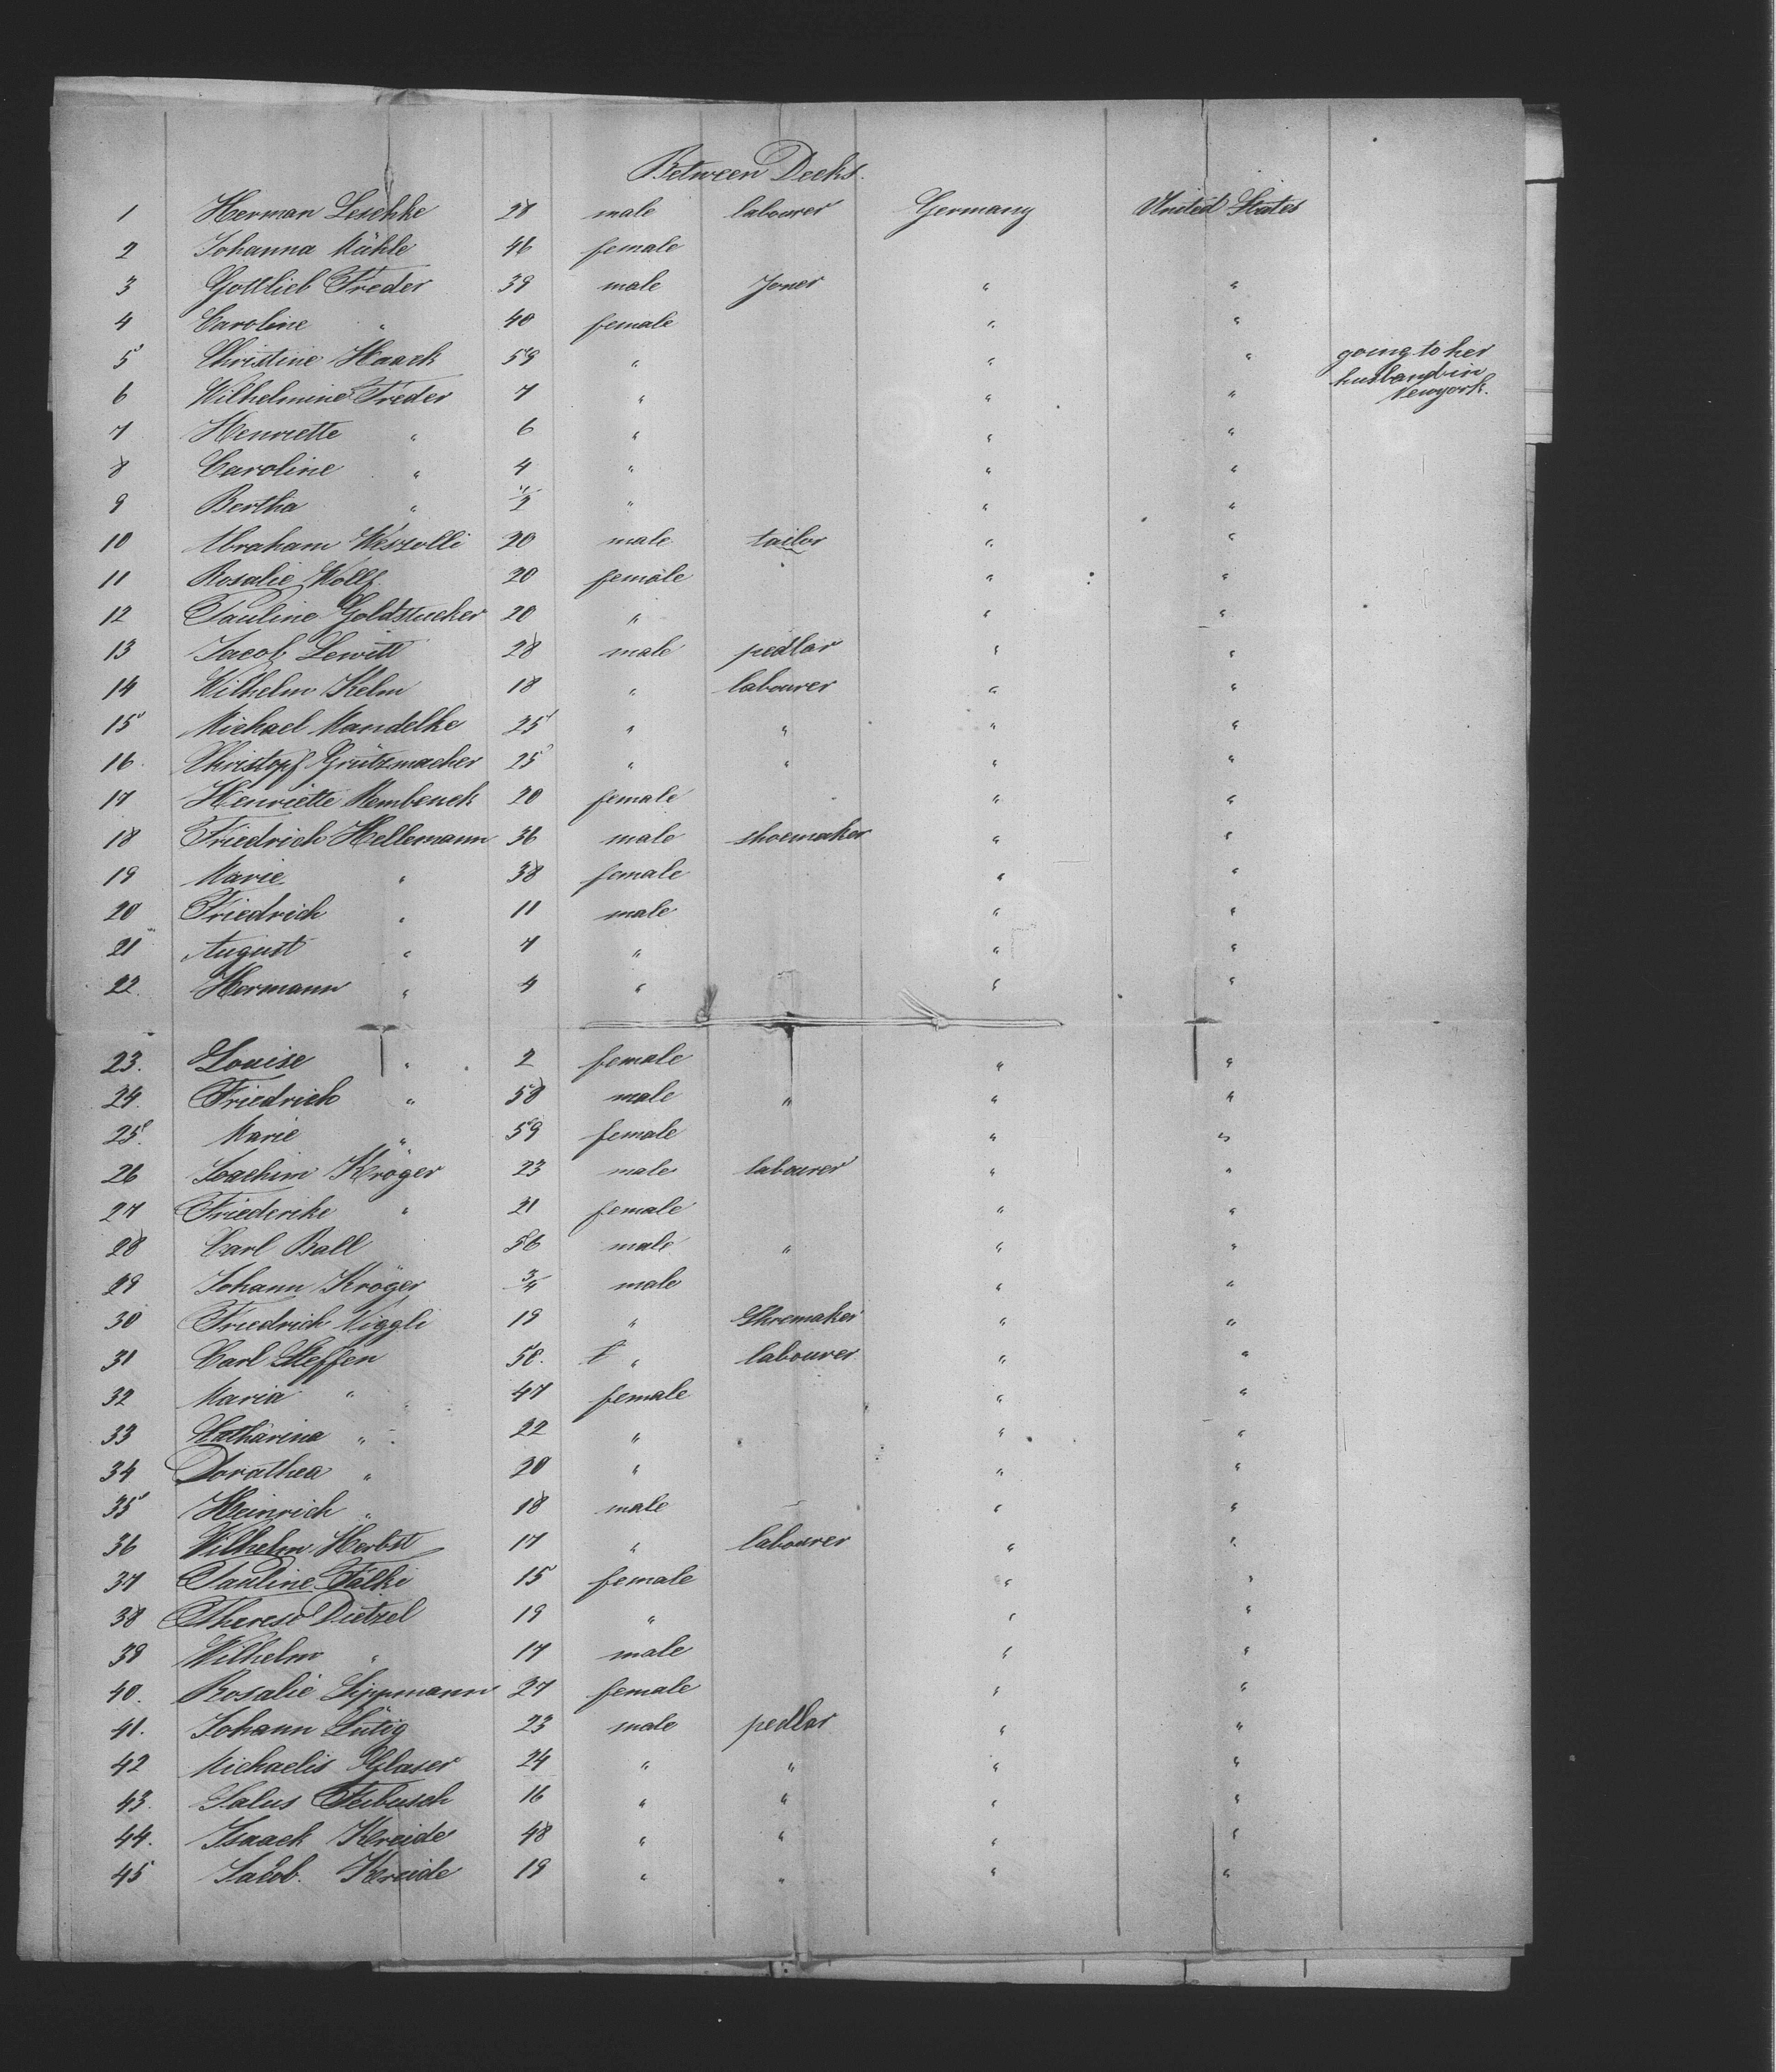 Between Decks.
1 Herman Leschke 28 male labourer Germany United States
2 Johanna Mühle 46 female
3 Gottlieb Freder 39 male Joner " "
4 Caroline " 40 female " "
5 Christine Haack 59 " " " going to her
husband in
Newyork.
6 Wilhelmine Freder 7 " " "
7 Henriette " 6 " " "
8 Caroline " 4 " " "
9 Bertha " " " "
10 Abraham Weszolli 20 male tailor " "
11 Rosalie Wollf 20 female " "
12 Pauline Goldstucker 20 " " "
13 Jacob Lewitt 28 male pedlar " "
14 Wilhelm Kelm 18 " labourer " "
15 Michael Mandelke 25 " " " "
16. Christopf Grützmacher 25 " " " "
17 Henriette 20 female " "
18 Friedrich Hellemann 36 male shoemaker " "
19 Marie " 38 female " "
20 Friedrich " 11 male " "
21 August " 7 " " "
22. Hermann " 4 " " "
23. Louise " 2 female " "
24. Friedrich " 58 male " " "
25. Marie " 59 female " "
26 Joachim Kröger 23 male labourer " "
27 Friedericke " 21 female " "
28 Carl Ball 56 male " " "
29 Johann Kröger 3/4 male " "
30 Friedrich Niggli 19 " Shremaker " "
31 Carl Steffen 50. " labourer " "
32 Maria " 47 female " "
33 Catharina " 22 " " "
34 Dorathea " 20 " " "
35 Heinrich " 18 male " "
36 Wilhelm Herbst 17 " labourer " "
37 Pauline Falki 15 female " "
38 Therese Dietzel 19 " " "
39 Wilhelm " 17 male " "
40. Rosalie Lippmann 27 female " "
41. Johann Lütig 23 male pedlar " "
42 Michaelis Glaser 24 " " " "
43. Salus Feibusch 16 " " " "
44. Isaack Kreide 48 " " " "
45 Jacob. Kreide 19 " " " "